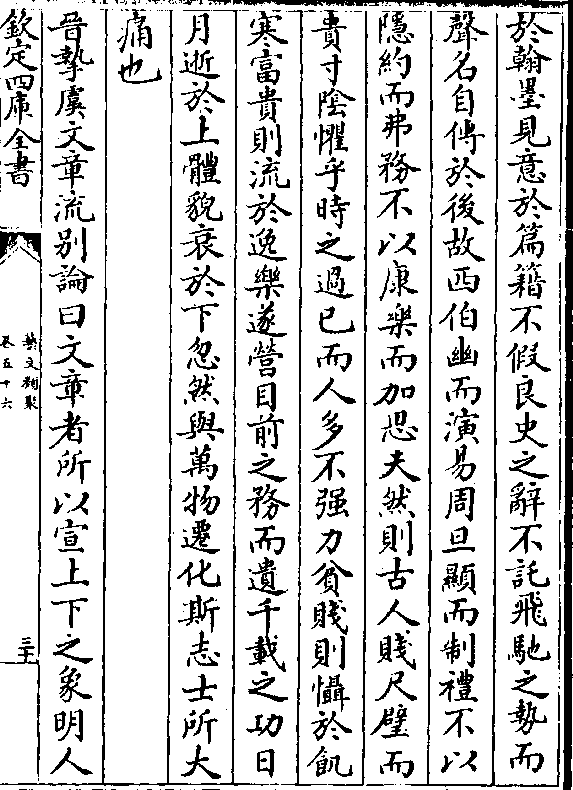 於翰墨見意於篇籍不假良史之辭不託飛馳之勢而
聲名自傳於後故西伯幽而演易周旦顯而制禮不以
隱約而弗務不以康樂而加思夫然則古人賤尺璧而
貴寸陰懼乎時之過已而人多不强力貧賤則懾於飢
寒富貴則流於逸樂遂營目前之務而遺千載之功日
月逝於上體貌衰於下忽然與萬物遷化斯志士所大
痛也
晉摯虞文章流别論曰文章者所以宣上下之象明人
欽定四庫全書
藝文類聚
卷五十六
三十